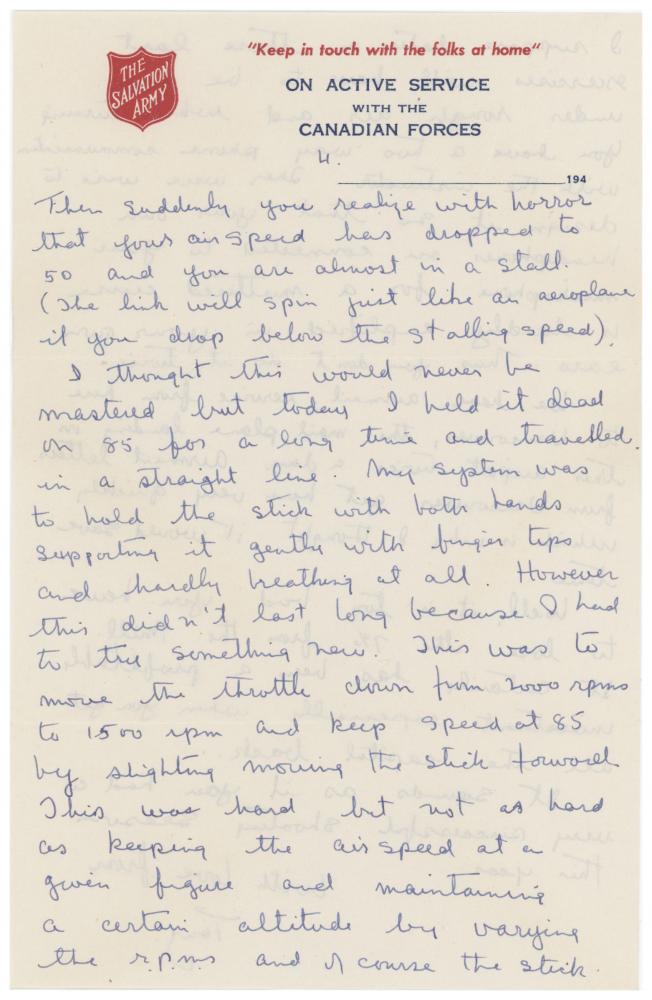 "Keep in touch with the folks at home"
THE
SALVATION
ARMY
ON ACTIVE SERVICE
WITH THE
CANADIAN FORCES
4.
194
Then suddenly you realize with horror
that your airspeed has dropped to
50 and you are almost in a stall.
(The link will spin just like an aeroplane
if you drop below the stalling speed).
I thought this would never be
mastered but today I held it dead
on 85 for a long time and travelled
in a straight line. My system was
to hold the stick with both hands
supporting it gently with finger tips
and hardly breathing at all. However
this didn't last long because I had
to try something new. This was to
move the throttle down from 2000 rpms
to 1500 rpm and keep speed at 85
by slighting moving the stick forward
This was hard but not as hard
as keeping the airspeed at a
given figure and maintaining
a certain altitude by varying
the r.p.ms and of course the stick.